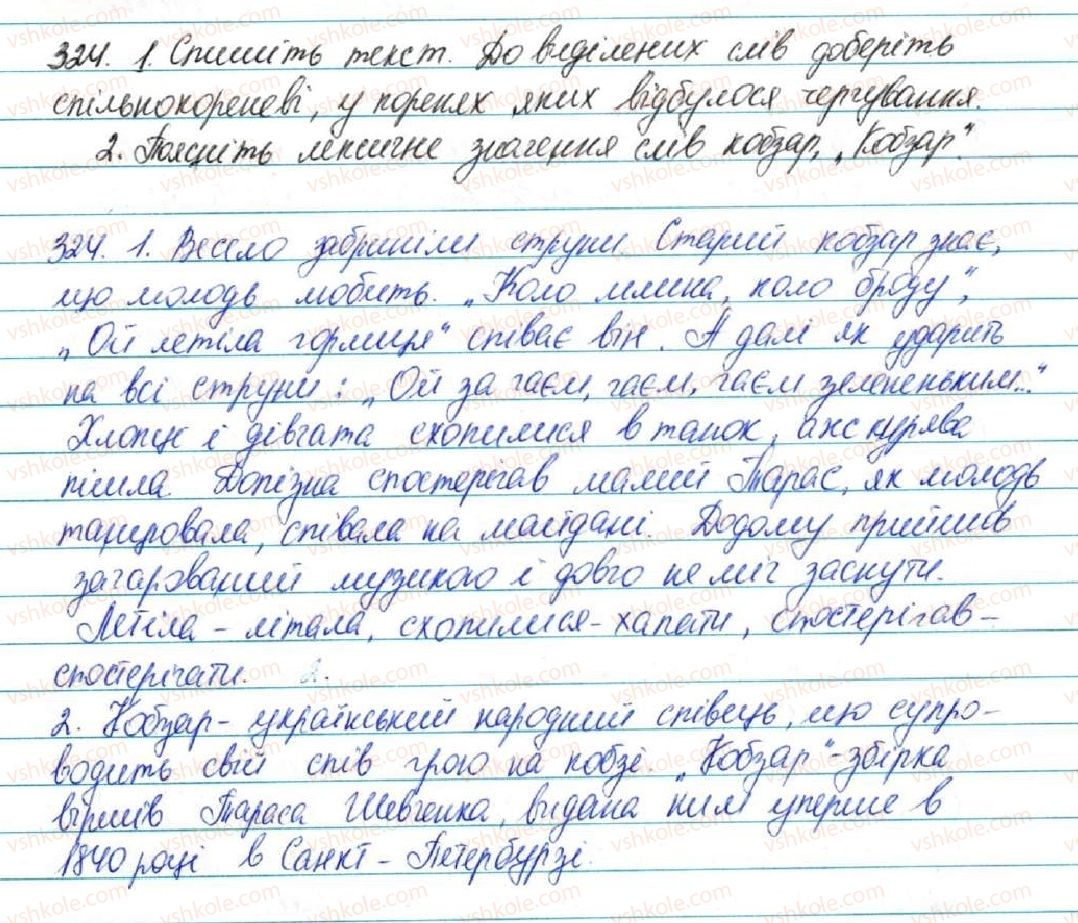 324. 1. Спишіть текст. До виділених слів доберіть
спільнокореневі, у коренях яких відбулося чергування.
2. Поясніть лексичне значення слів кобзар, „Кобзар".
324. 1. Весело забриніли струни. Старий кобзар знає,
що молодь любить. „Коло млина, коло броду",
„Ой летіла горлиця" співає він. А далі як ударить
на всі струни: „Ой за гаєм, гаєм, гаєм зелененьким..."
Хлопці і дівчата схопилися в танок, аж курява
пішла. Допізна спостерігав малий Тарас, як молодь
танцювала, співала на майдані. Додому прийшов
зачарований музикою і довго не міг заснути.
Летіла - літала, схопилися - хапати, спостерігав -
спостерігати. 2.
2. Кобзар - український народний співець, що супро-
водить свій спів грою на кобзі. „Кобзар" - збірка
віршів Тараса Шевченка, видана ним уперше в
1840 році в Санкт - Петербурзі.
vshkole.com